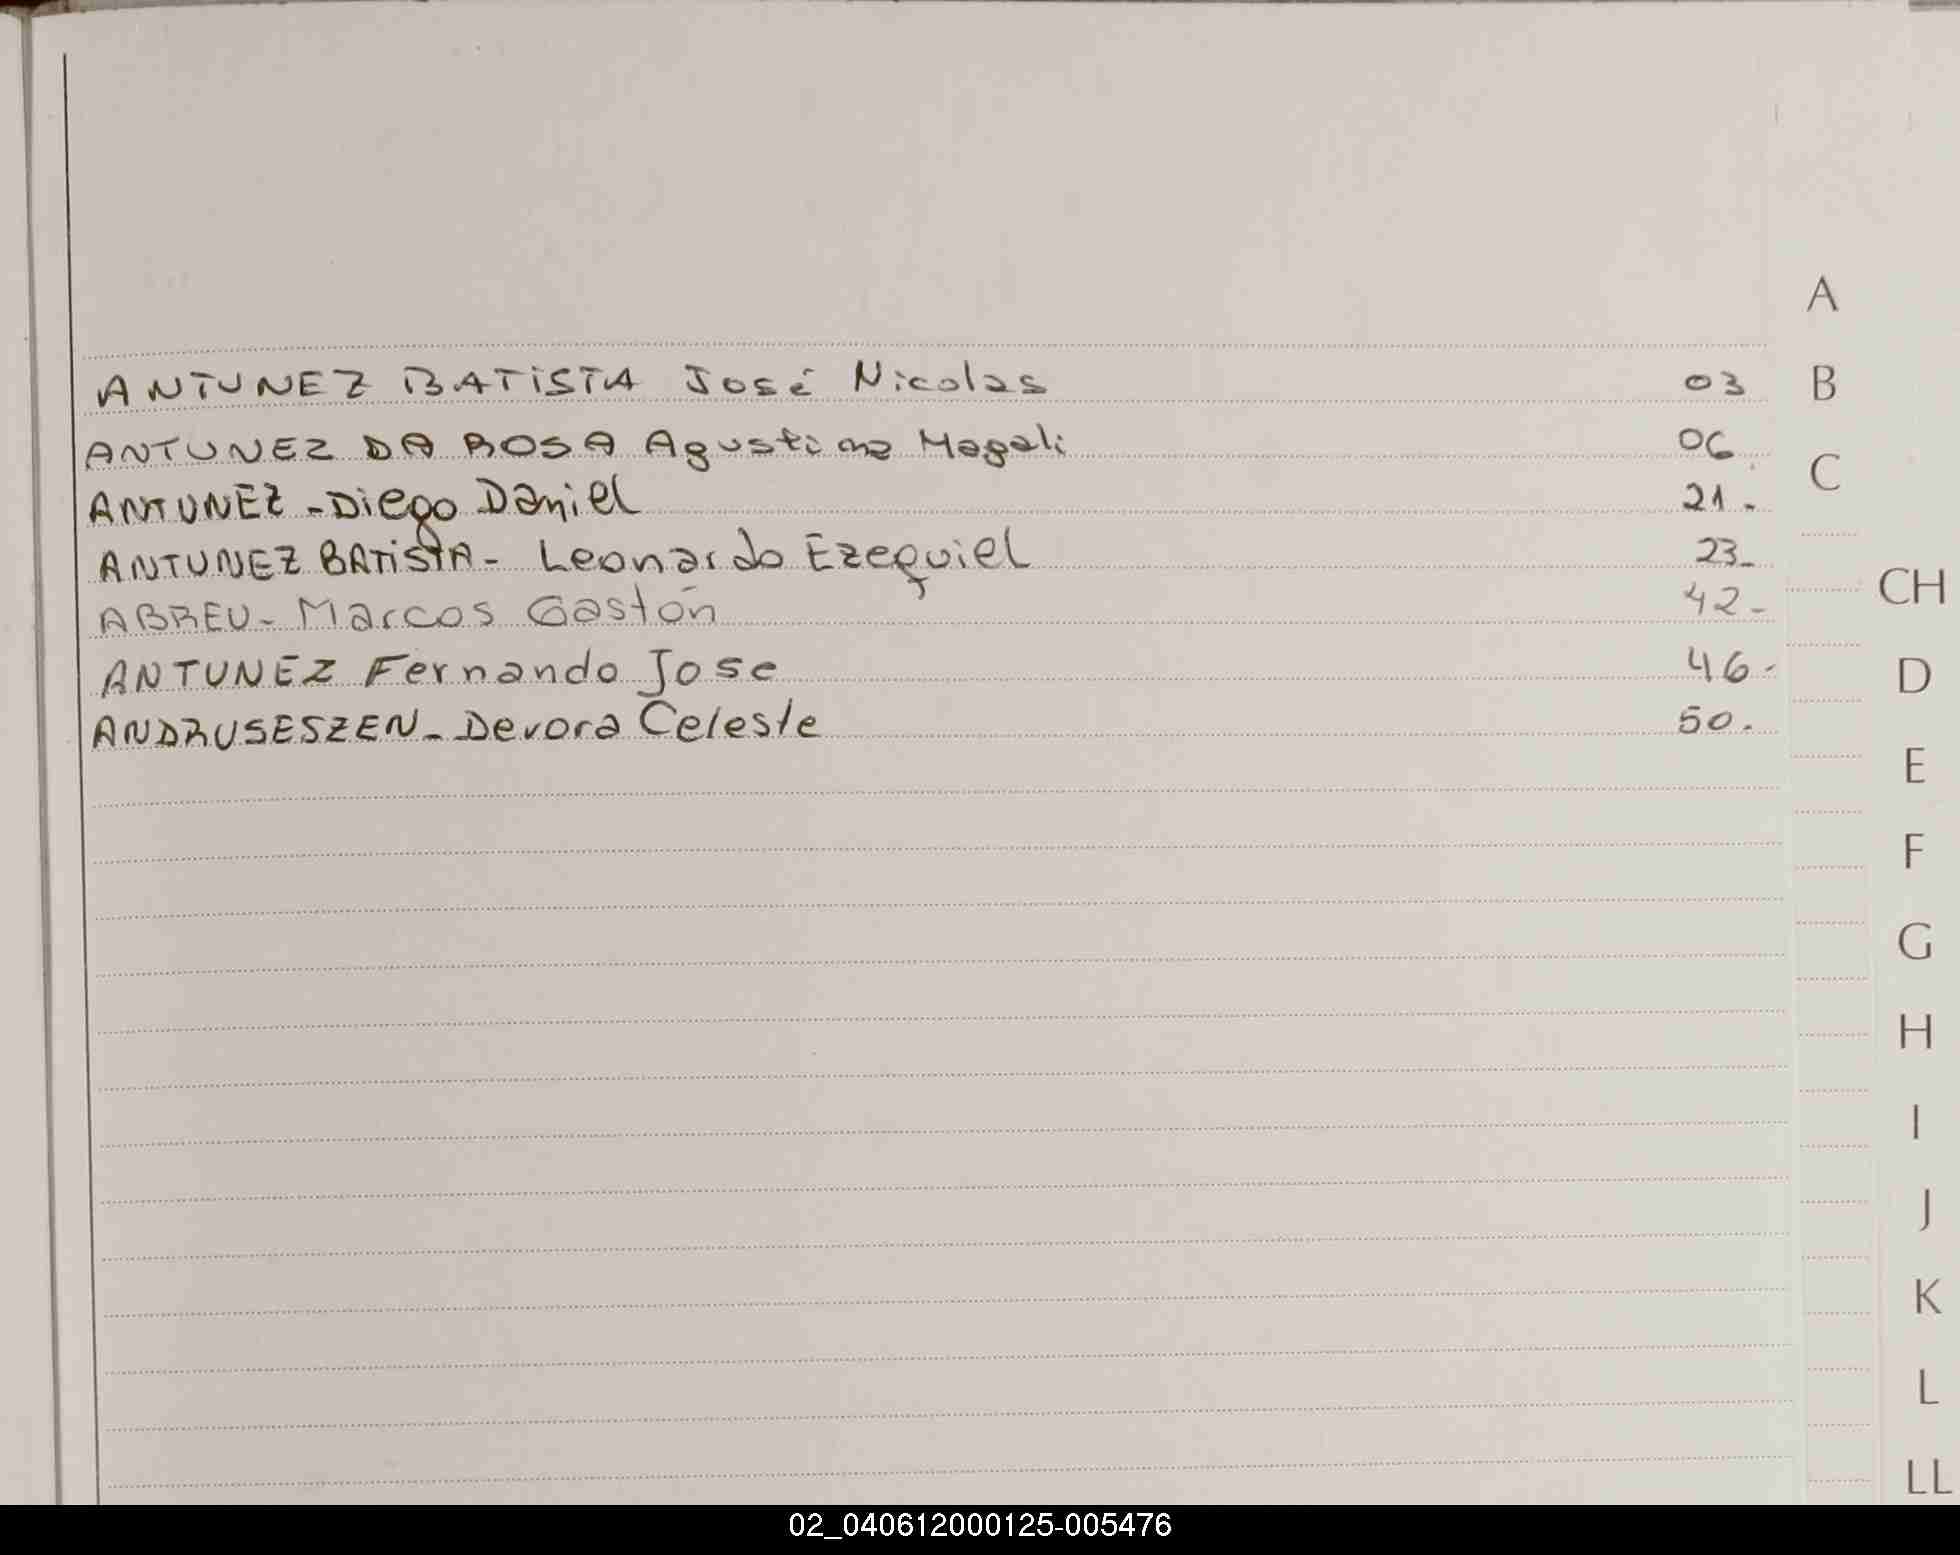 ANTUNEZ BATISTA José Nicolas 03
ANTUNEZ DA ROSA Agustina Magali 06
ANTUNEZ - Diego Daniel 21.
ANTUNEZ BATISTA - Leonardo Ezequiel 23-
ABREU - Marcos Gastón 42-
ANTUNEZ Fernando Jose 46-
ANDRUSESZEN - Devora Celeste 50.
A
B
C
CH
D
E
F
G
H
I
J
K
L
LL
02_040612000125-005476